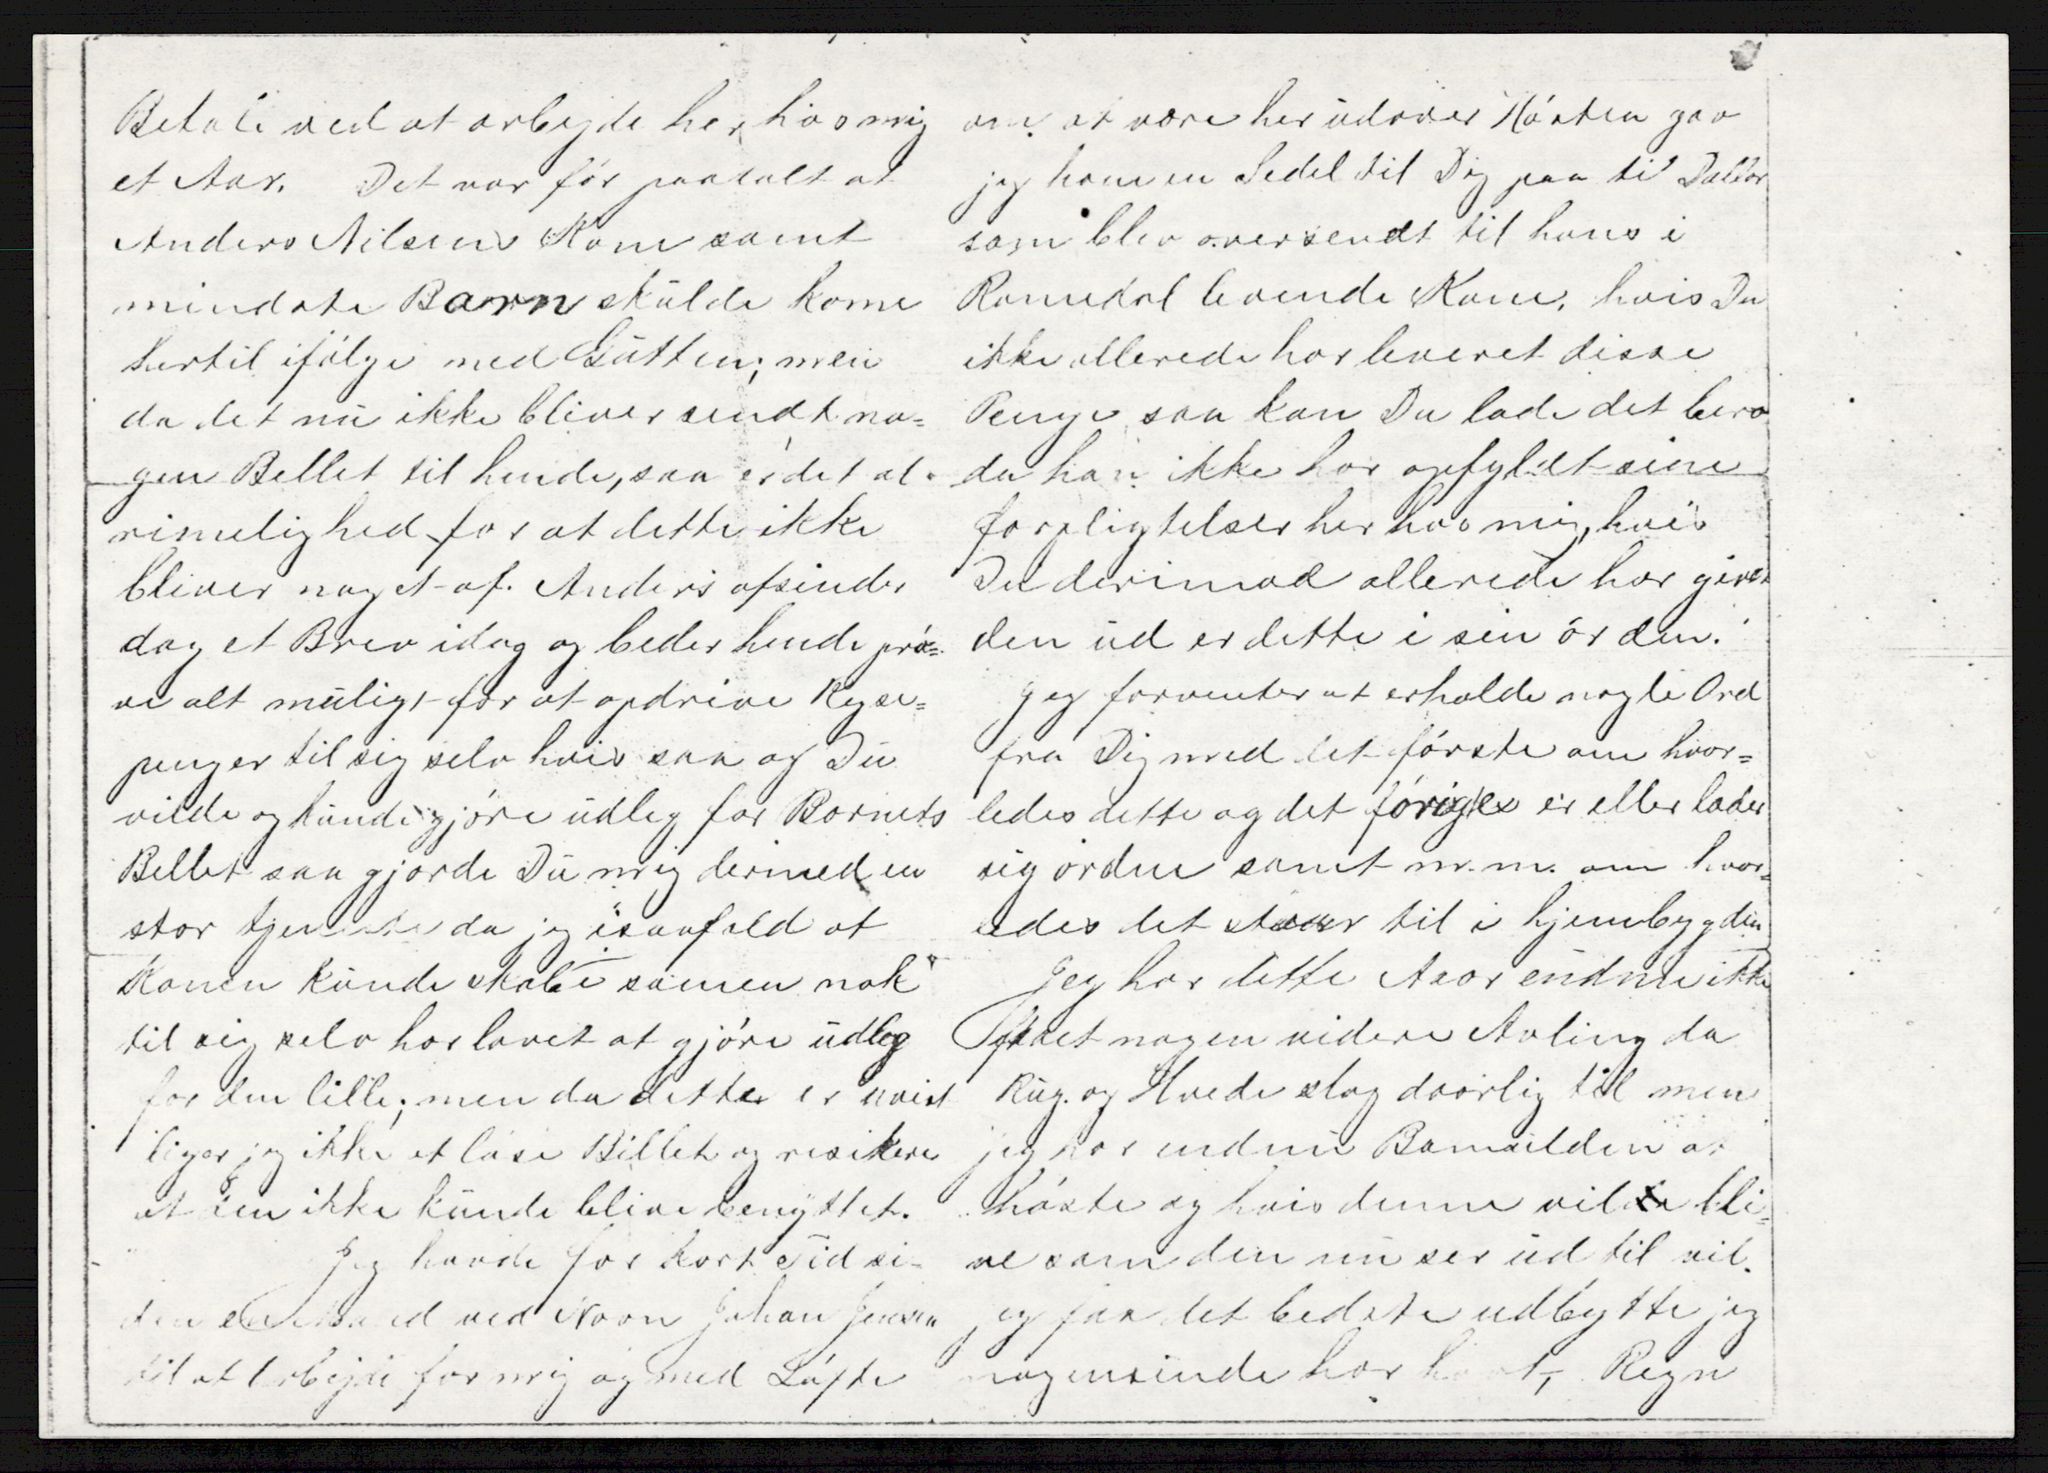 Betale ved at arbejde her hos mig
et Aar. Det var før paatalt at
Anders Nilsens Kone samt
mindste Barn skulde kome
hertil ifølge med Gutten; men
da det nu ikke bliver sendt no-
gen Bellet til hende, saa er det al
rimelighed for at dette ikke
bliver noget af. Anders afsender
dog et Brev idag og beder hende prø-
ve alt muligt for at opdrive Reyse-
penger til sig selv hvis saa og Du
vilde og kunde gjøre udleg for Barnets
Bellet saa gjorde Du mig dermed en
stor tjeneste da jeg isaafald at
Konen kunde skabe samen nok
til sig selv har lovet at gjøre udleg
for den lille; men da dette er uvist
jeg ikke at løse Billet og resikere
at den ikke kunde blive benyttet.
Jeg havde for kort Tid si-
den ved Navn Johan Jensen
til at arbejde for mig og med Løfte
om at være her udover Høsten gav
jeg ham en Sedel til Dig paa ti Dollar
som blev oversendt til hans i
Romedal levende Kone. hvis Du
ikke allerede har leveret disse
Penge saa kan Du lade det bero
da han ikke har opfyldt sine
forpligtelser her hos mig, hvis
Du derimod allerede har givet
den ud er dette i sin orden.
Jeg forventer at erholde nogle Ord
fra Dig med det første om hvor-
ledes dette og det førige er eller lader
sig ordne samt m.m. om hvor-
ledes det staar til i hjembygden
Jeg har dette Aar endnu ikke
faaet nogen videre Avling da
Rug og Hvede slog daarlig til men
jeg har endnu Bomulden at
høste og hvis denne vilde bli-
ve som den nu ser ud til vil
jeg faa det bedste udbytte jeg
nogensinde har havt, Regn